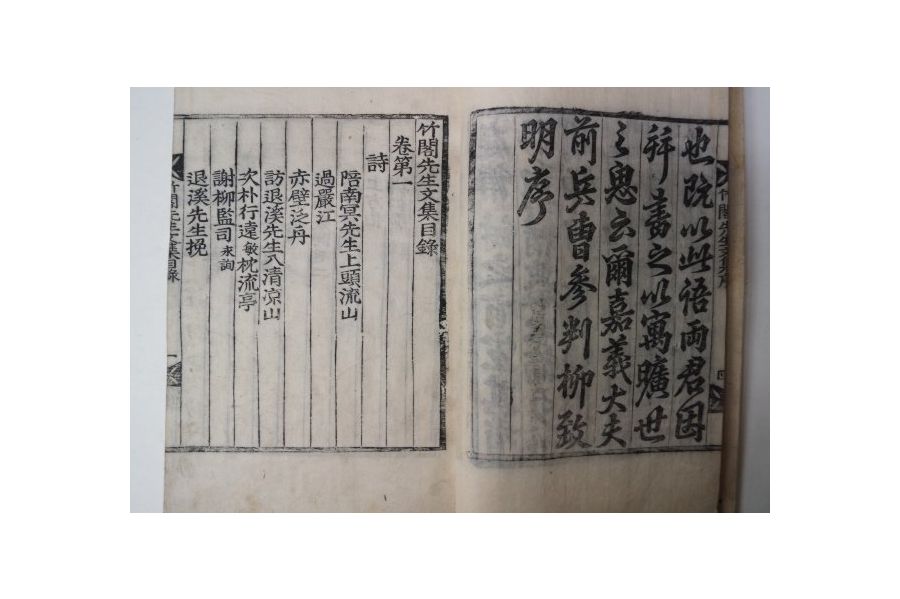 也旣以此語両君因
拜書之以寓曠世
之思云爾嘉義大夫
前兵曹參判柳致
明序
竹閣先生文集序
四
竹閣先生文集目錄
卷第一
詩
陪南冥先生上頭流山
過嚴江
赤壁泛舟
訪退溪先生入清凉山
次朴行遠敏枕流亭
謝柳監司永詢
退溪先生挽
竹閣先生文集目錄
一